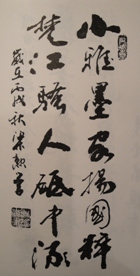 小雅墨客揚國粹
楚江騷人砥中流
歲在丙戌秋梁勲書